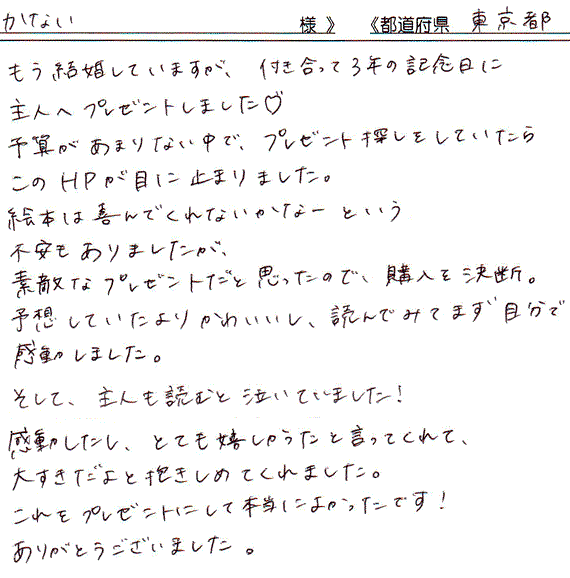 かけない 様 》 《都道府県 東京都
もう結婚していますが、付き合って3年の記念日に
主人へプレゼントしました♡
予算があまりない中で、プレゼント探しをしていたら
このHPが目に止まりました。
絵本は喜んでくれないかなーという
不安もありましたが、
素敵なプレゼントだと思ったので、購入を決断。
予想していたよりかわいいし、読んでみてまず自分で
感動しました。
そして、主人も読むと泣いていました!
感動したし、とても嬉しかったと言ってくれて、
大すきだよと抱きしめてくれました。
これをプレゼントにして本当によかったです!
ありがとうございました。